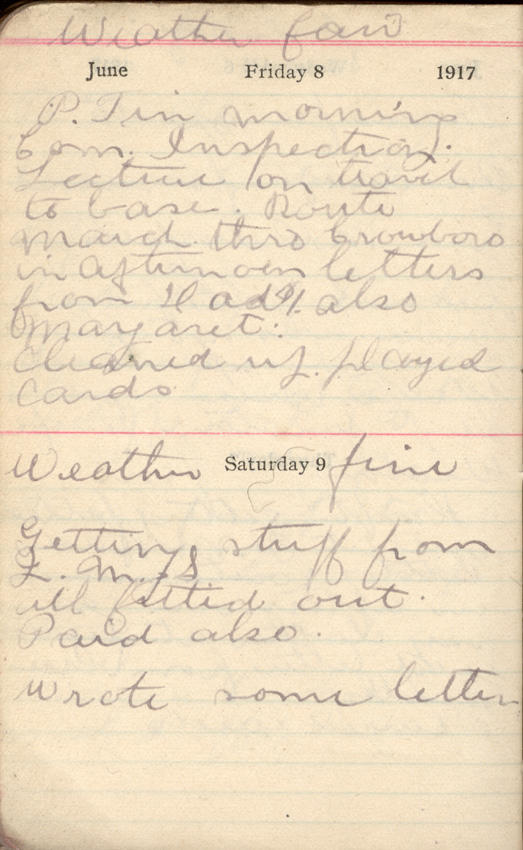 Weather fair
June Friday 8 1917
P. T in morning
Com. Inspection.
Lecture on travel
to base. Route
march thro Crowboro
in afternoon letters
from also
Margaret.
Cleaned up. played
cards
Weather Saturday 9 fine
Getting stuff from
Q. M. S
all fitted out.
Paid also.
Wrote some letters